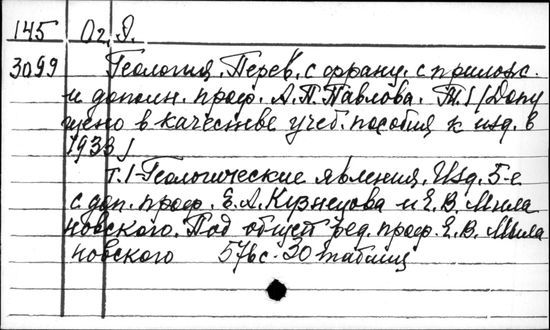 145 Ог, Э.
3099 Геология. Перев. с франц. с прилож.
и дополн. проф. А.П. Павлова. Т. 1 /Допу
щено в качестве учеб. пособия к изд. в
1933/
т. 1-Геологические явления. Изд. 5-е
с доп. проф. Е.А. Кузнецова и Е.В. Мила
новского. Под общей ред. проф. Е.В. Мила
новского 576с. 30 таблиц